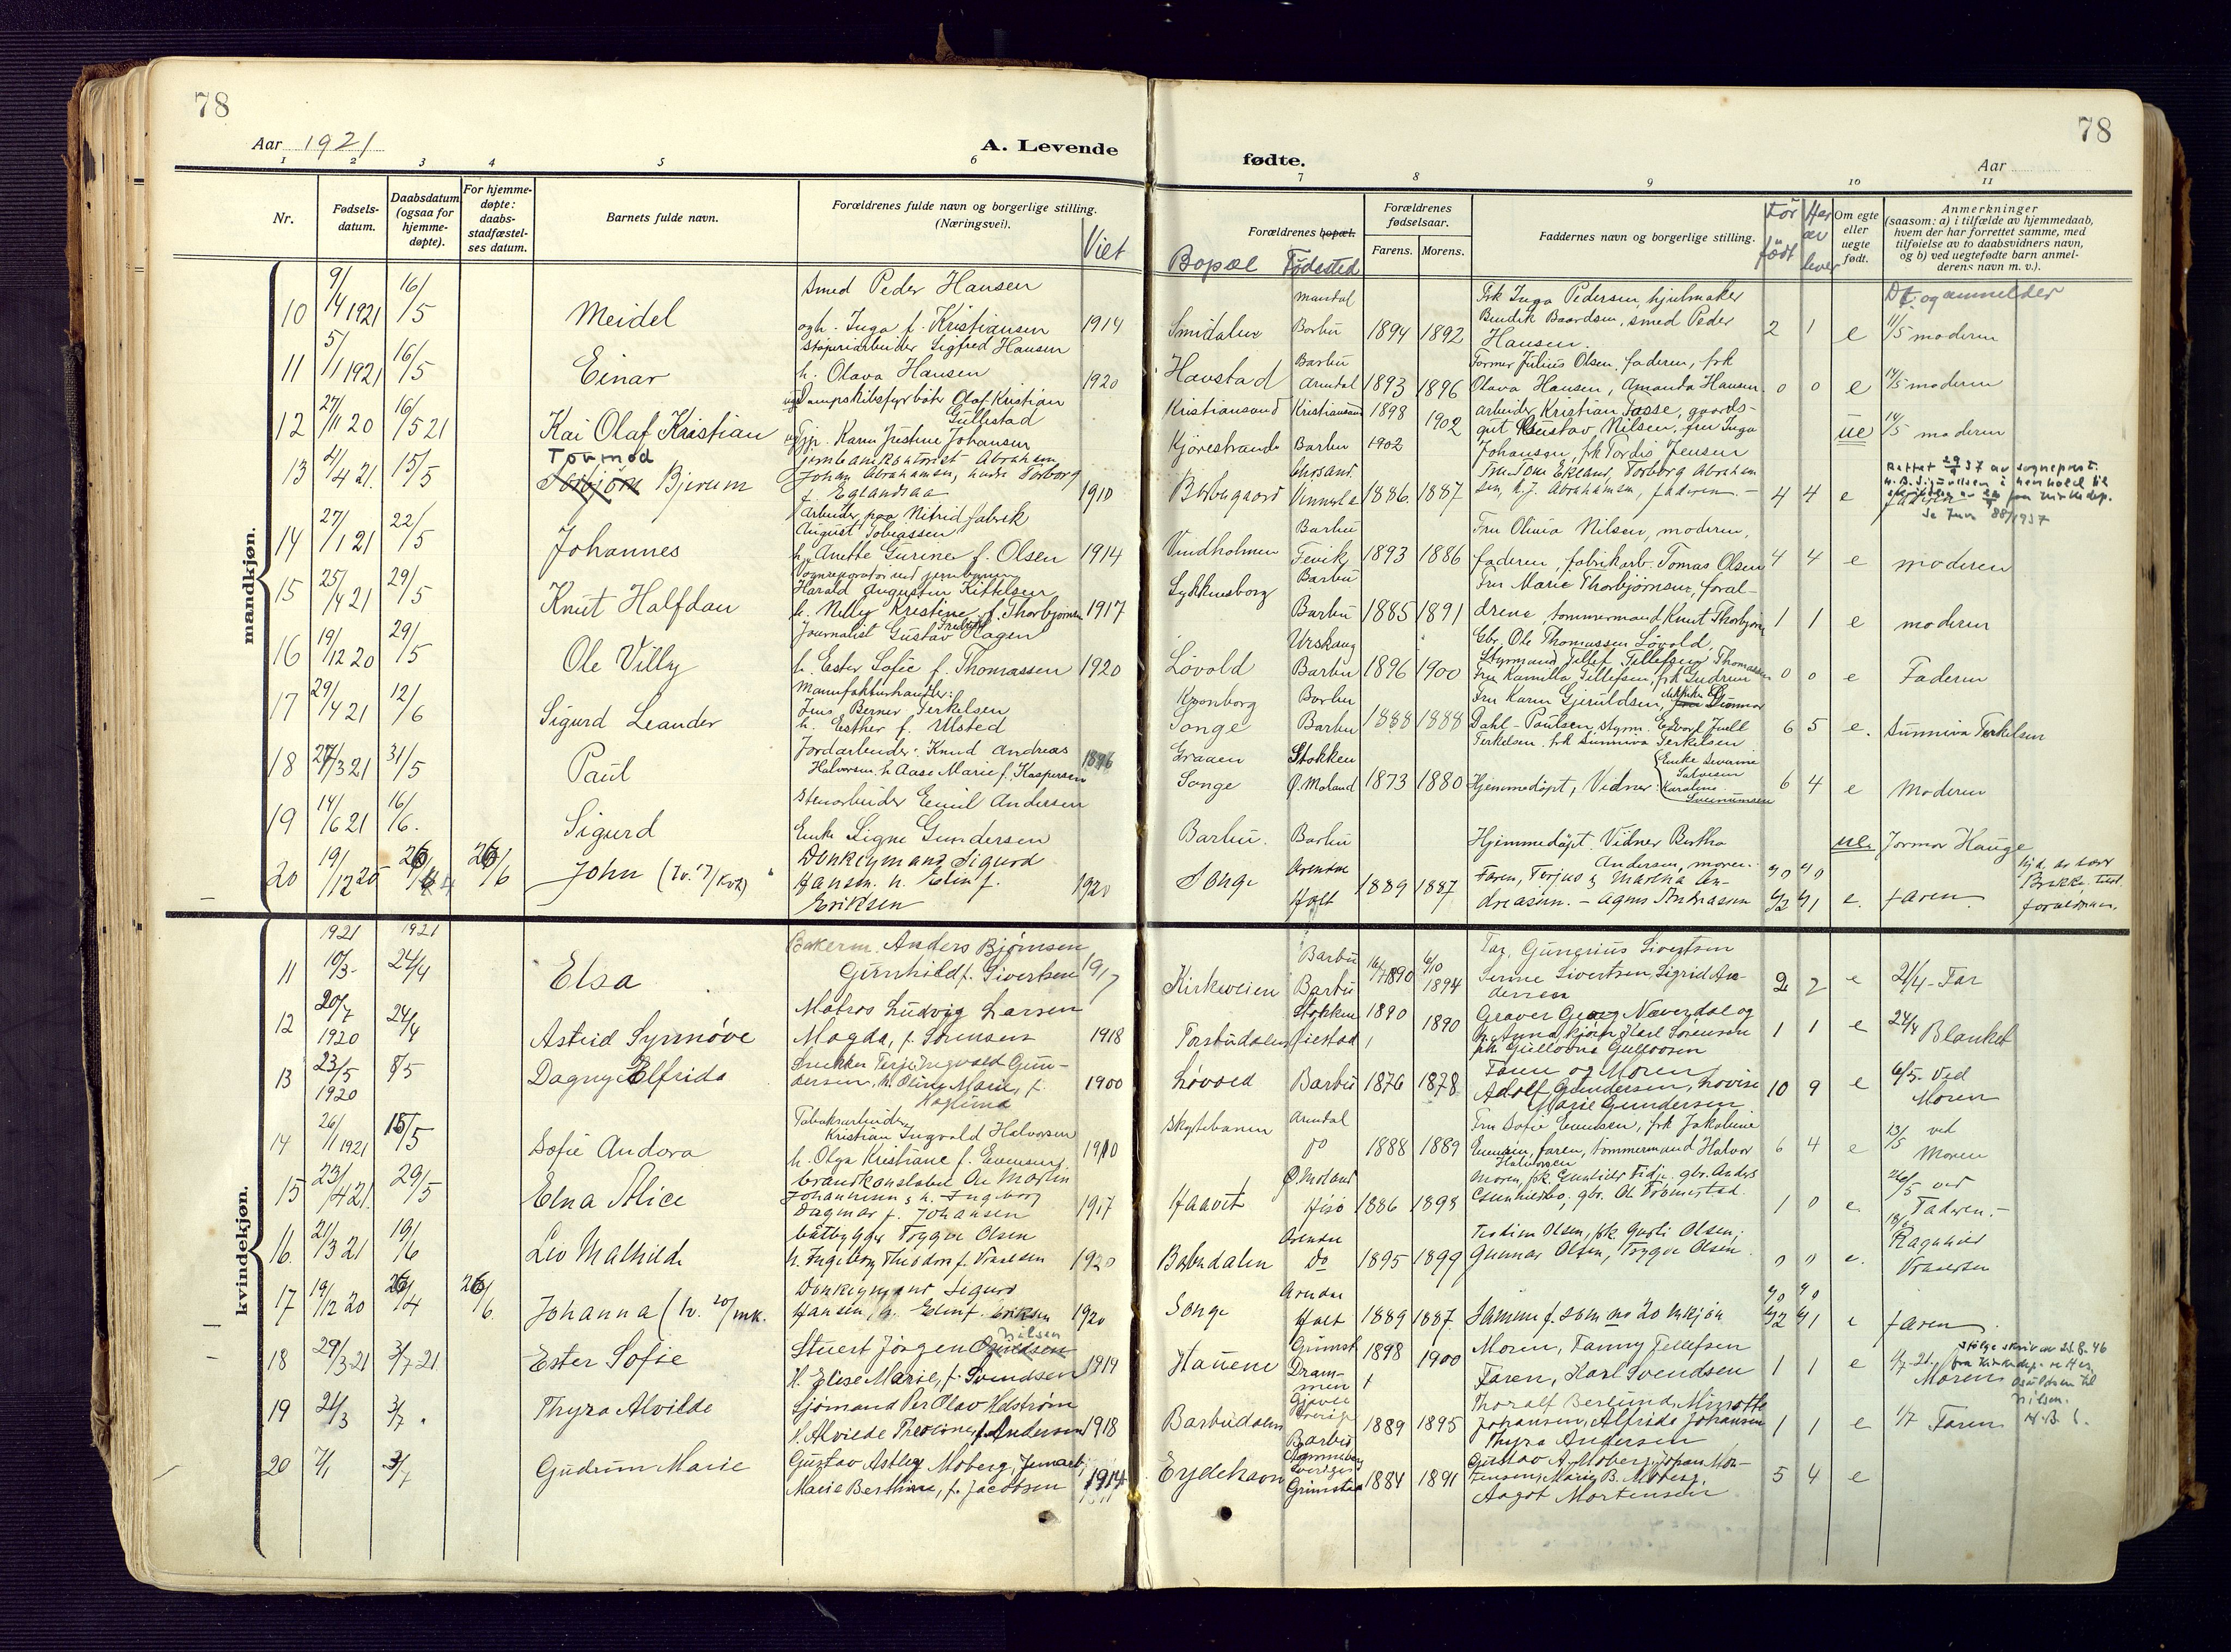 78
78
Aar 1921
A. Levende
fødte.
Aar
1 2 3 4 5 6 7 8 9 10 11
Nr.
Fødsels-
datum.
Daabsdatum
(ogsaa for
hjemme-
døpte).
For hjemme-
døpte:
daabs-
stadfæstel-
ses datum.
Barnets fulde navn.
Forældrenes fulde navn og borgerlige stilling.
(Næringsvei).
Viet
Forældrenes bopæl.
Bopæl Fødested
Forældrenes
fødselsaar.
Farens. Morens.
Faddernes navn og borgerlige stilling.
Før født
Her av lever
Om egte
eller
uegte
født.
Anmerkninger
(saasom: a) i tilfælde av hjemmedaab,
hvem der har forrettet samme, med
tilføielse av to daabsvidners navn,
og b) ved uegtefødte barn anmel-
derens navn m. v.).
mandkjøn.
10 9/14 1921 16/5 Meidel
Smed Peder Hansen
og h. Inga f. Kristiansen 1914
Smidalen Mandal Barbu 1894 1892
Frk Inga Pedersen, hjulmaker
Bendik Baardsen, smed Peder
Hansen.
2 1 e 11/5 moderen
11 5/1 1921 16/5 Einar
støperiarbeider Sigfred Hansen
h. Olava Hansen 1920
Havstad Barbu Arendal 1893 1896
Former Julius Olsen, faderen, frk
Olava Hansen, Amanda Hansen.
0 0 e 14/5 moderen
12 27/11 20 16/5 21 Kai Olaf Kristian
ug Dampskibsfyrbøter Olaf Kristian
Gullestad
ug Tjp. Karen Justine Johansen
Kristiansand Kristiansand 1898 1902
Kjørestrand Barbu 1902
arbeider Kristian Tasse, gaards-
gut Gustav Nilsen, fru Inga
Johansen, frk Tordis Jensen
ue 14/5 moderen
13 21/4 21. 15/5 Tormod
Torbjørn Bjerum
jernbanekontorist Abraham
Johan Abrahamsen, hustru Torborg
f. Eglandsaa 1910
Barbugaard Vennesla 1886. 1887
Fru Tone Ekeland, Torborg Abraham
sen, K.J. Abrahamsen, faderen. -
4 4 e faderen
Rettet 29/9 37 av sogneprest.
Se Jurn 88/1937
14 27/1 21 22/5 Johannes
Arbeider paa Nitrid fabrik
August Tobiassen
h. Anette Gurine f. Olsen 1914
Vindholmen Barbu Fevik 1893 1886
Fru Olivia Nilsen, moderen,
faderen, fabrikarb. Tomas Olsen
4 4 e moderen
15 25/4 21 29/5 Knut Halfdan
Vognreparatør ved jernbanen
Harald Augustin Kittelsen
h. Nelly Kristine f. Thorbjørnsen 1917
Lykkensborg Barbu Barbu 1885 1891
Fru Marie Thorbjørnsen, foræl-
drene, tømmermand Knut Thorbjørnsen
1 1 e moderen
16 19/12 20 29/5 Ole Villy
Journalist Gustav Fredrik Hagen
h. Ester Sofie f. Thomassen 1920
Løvold Urskaug Barbu 1896 1900
Gbr. Ole Thomassen Løvold,
Styrmand Tellef Tellefsen Thomassen
Fru Kamilla Tellefsen, frk Gudrun
0 0 e Faderen
17 29/4 21 12/6 Sigurd Leander
Manufakturhandler:
Jens Berner Terkelsen
h. Esther f. Ulsted
Kronborg Songe Barbu Barbu 1888 1888
Fru Karen Gjeruldsen,
Dahl-Paulsen, styrm. Edvard Juell
Terkelsen. frk Sunniva Terkelsen
6 5 e. Sunniva Terkelsen
18 27/3 21 31/5 Paul
Jordarbeider: Knud Andreas
Halvorsen. h. Aase Marie f. Kaspersen
Graaen Songe Stokken Ø. Moland 1873 1880
Hjemmedøpt, Vidner: Enke Severine
Salvesen
Karoline
6 4 e Moderen
19 14/6 21 16/6. Sigurd
Stenarbeider Emil Andersen
Enke Signe Gundersen
Barbu. Barbu
Hjemmedøpt. Vidner Bertha
Andersen, moren.
ue Jormor Hauge
20 19/12 20 26/6 John (tv. 17/kvk)
Donkeymand Sigurd
Hansen. h. Elin f.
Eriksen 1920
Songe Arendal Holt 1889 1887
Faren, Terjus & Martha An-
dreasen. - Agnes Andreasen
e. faren
kvindekjøn.
1921 1921
11 10/3- 24/4 Elsa
Bakerm. Anders Bjørnsen
Gunhild f. Sivertsen 1917
Kirkeveien Barbu Barbu 16/7 1890 6/10 1894
Far, Gunerius Sivertsen
Serine Sivertsen, Sigrid An-
dersen
2 2 e 21/4 - Far
12 20/7 1920 24/4 Astrid Synnøve
Matros Ludvig Larsen
Magda, f. Sørensen 1918
Torbudalen Stokken Øiestad 1890 1890
Graver Georg Næverdal og
h. Anna, kjører Karl Sørensen
frk. Gullovne Gulloosen
1 1 e 24/4 Blanket
13 23/5 1920 8/5 Dagny Elfrida
Snekker Terje Ingvald Gun-
dersen, h. Oline Marie, f.
Haglund 1900
Løvold Barbu 1876 1878
Faren og Moren,
Adolf Gundersen, Lovise
Marie Gundersen
10 9 e 6/5 - Ved
Moren
14 26/1 1921 15/5 Sofie Andora
Tobaksarbeider
Kristian Ingvald Halvorsen
h. Olga Kristiane f. Evensen 1910
Skytebanen Arendal do 1888 1889
Fru Sofie Evensen, frk Jakobine
Evensen, faren, tømmermand Halvor
Halvorsen
6 4 e 13/5 ved
Moren
15 23/4 21. 29/5 Elna Alice
brandkonstabel Ole Martin
Johannesen & h. Ingeborg
Dagmar f. Johansen 1917
Haavet Ø. Moland Hisø 1886 1898
Moren, frk. Gunhild Fidje, gbr. Anders
1 0 e 26/5 ved
Faderen. -
16. 21/3 21 19/6 Liv Mathilde
båtbygger Trygve Olsen
h. Ingeborg Theodora f. 1920
Barbudalen Arendal Do 1895 1899
Tradine Olsen, frk Gusli Olsen,
Gunnar Olsen, Trygve Olsen
0 0 e. 18/6 Ragnhild
17 19/12 20 26/6 Johanna (tv. 20/mk.
Donkeymand Sigurd
Hansen, h. Elin f. Eriksen 1920
Songe Arendal Holt 1889 1887.
Samme f. som no 20 mkjøn
e faren
18 29/3 21 3/7 21 Ester Sofie
Stuert Jørgen Osuldsen Nilsen
H. Elise Marie, f. Svendsen 1919
Hauene Grimst Drammen 1898 1900
Moren, Fanny Tellefsen
Faren, Karl Svendsen
1 1 e 1/7-21. Moren
ifølge skriv av 21.8.46
fra Kirkedep.
Osuldsen til
Nilsen.
19 21/3 3/7. Thyra Alvilde
Sjømand Per Olav Hedstrøm
H. Alvilde Theodine, f. Andersen 1918
Barbudalen Gjævle Sverige Barbu 1889 1895
Thoralf Berlund, Minotte
Johansen, Alfrida Johansen
Thyra Andersen
1 1 e 1/7 Faren
20 4/1 3/7 Gudrun Marie
Gustav Astley Moberg, Jernarb.
Marie Berthine, f. Jacobsen 1914
Eydehavn Sverige Grimstad 1884 1891
Gustav A. Moberg, Johan Mor-
tensen, Marie B. Moberg,
Aagot Mortensen
5 4 e